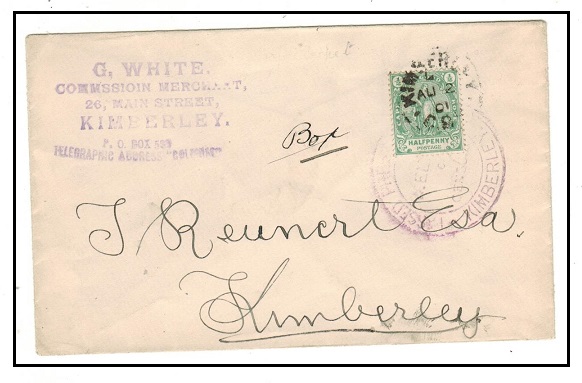 G. WHITE.
COMMSSIOIN MERCHANT,
26, MAIN STREET,
KIMBERLEY.
P. O. BOX
TELEGRAPHIC ADDRESS
Box
½ ½
HALFPENNY
POSTAGE
KIMBERLEY
J Reunert Esq.
Kimberley